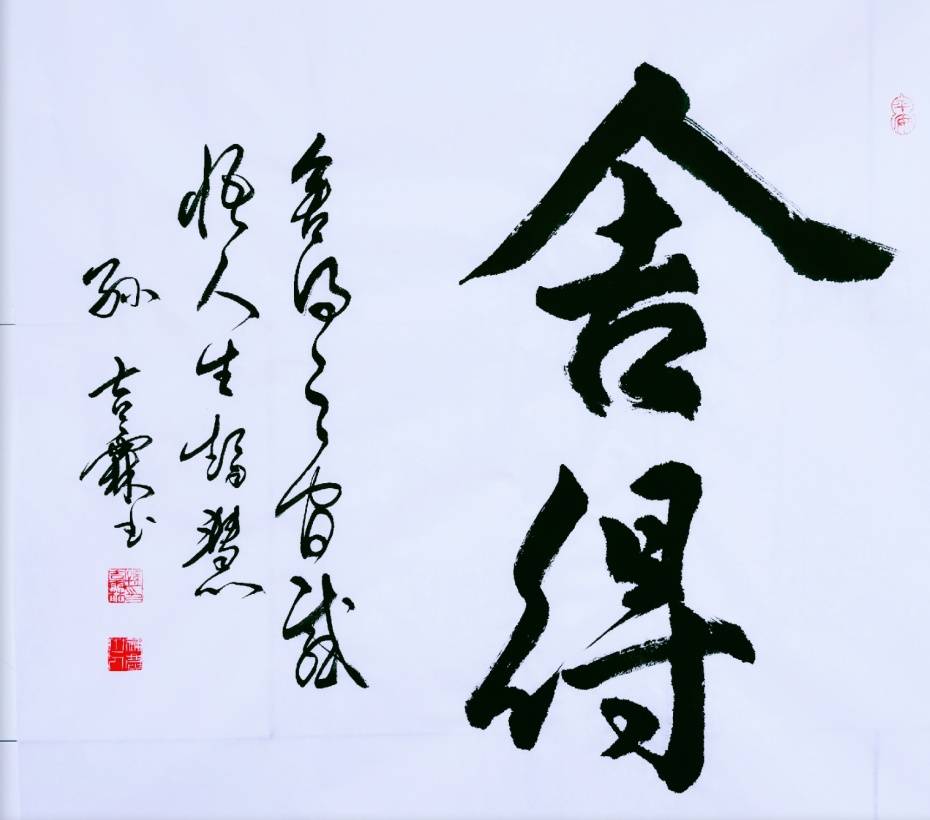 舍得
舍得之间感
悟人生智慧
孙吉霖书